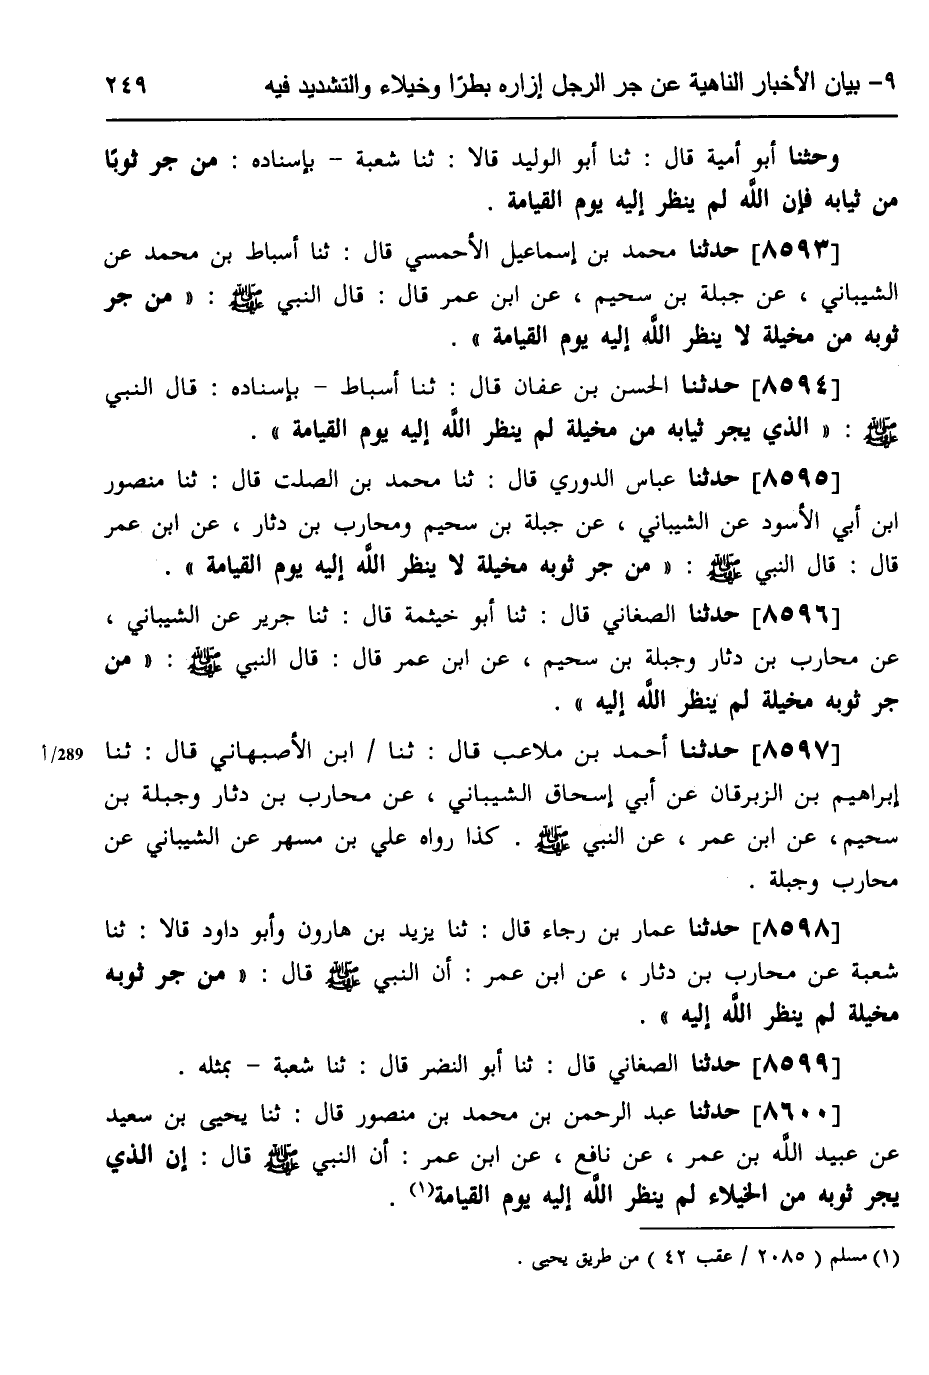 ٩- بيان الأخبار الناهية عن جر الرجل إزاره بطرًا وخيلاء والتشديد فيه ٢٤٩
وحثنا أبو أمية قال : ثنا أبو الوليد قالا : ثنا شعبة - بإسناده : من جر ثوبًا
من ثيابه فإن اللَّه لم ينظر إليه يوم القيامة .
[٨٥٩٣] حدثنا محمد بن إسماعيل الأحمسي قال : ثنا أسباط بن محمد عن
الشيباني ، عن جبلة بن سحيم ، عن ابن عمر قال : قال النبي ﷺ : « من جر
ثوبه من مخيلة لا ينظر اللَّه إليه يوم القيامة » .
[٨٥٩٤] حدثنا الحسن بن عفان قال : ثنا أسباط - بإسناده : قال النبي
ﷺ : « الذي يجر ثيابه من مخيلة لم ينظر اللَّه إليه يوم القيامة » .
[٨٥٩٥] حدثنا عباس الدوري قال : ثنا محمد بن الصلت قال : ثنا منصور
ابن أبي الأسود عن الشيباني ، عن جبلة بن سحيم ومحارب بن دثار ، عن ابن عمر
قال : قال النبي ﷺ : « من جر ثوبه مخيلة لا ينظر اللَّه إليه يوم القيامة » .
[٨٥٩٦] حدثنا الصغاني قال : ثنا أبو خيثمة قال : ثنا جرير عن الشيباني ،
عن محارب بن دثار وجبلة بن سحيم ، عن ابن عمر قال : قال النبي ﷺ : « من
جر ثوبه مخيلة لم ينظر اللَّه إليه » .
[٨٥٩٧] حدثنا أحمد بن ملاعب قال : ثنا / ابن الأصبهاني قال : ثنا 289/أ
إبراهيم بن الزبرقان عن أبي إسحاق الشيباني ، عن محارب بن دثار وجبلة بن
سحيم، عن ابن عمر ، عن النبي ﷺ . كذا رواه علي بن مسهر عن الشيباني عن
محارب وجبلة .
[٨٥٩٨] حدثنا عمار بن رجاء قال : ثنا يزيد بن هارون وأبو داود قالا : ثنا
شعبة عن محارب بن دثار ، عن ابن عمر : أن النبي ﷺ قال : « من جر ثوبه
مخيلة لم ينظر اللَّه إليه » .
[٨٥٩٩] حدثنا الصغاني قال : ثنا أبو النضر قال : ثنا شعبة - بمثله .
[٨٦٠٠] حدثنا عبد الرحمن بن محمد بن منصور قال : ثنا يحيى بن سعيد
عن عبيد اللَّه بن عمر ، عن نافع ، عن ابن عمر : أن النبي ﷺ قال : إن الذي
يجر ثوبه من الخيلاء لم ينظر اللَّه إليه يوم القيامة(١) .
(١) مسلم ( ٢٠٨٥ / عقب ٤٢ ) من طريق يحيى .